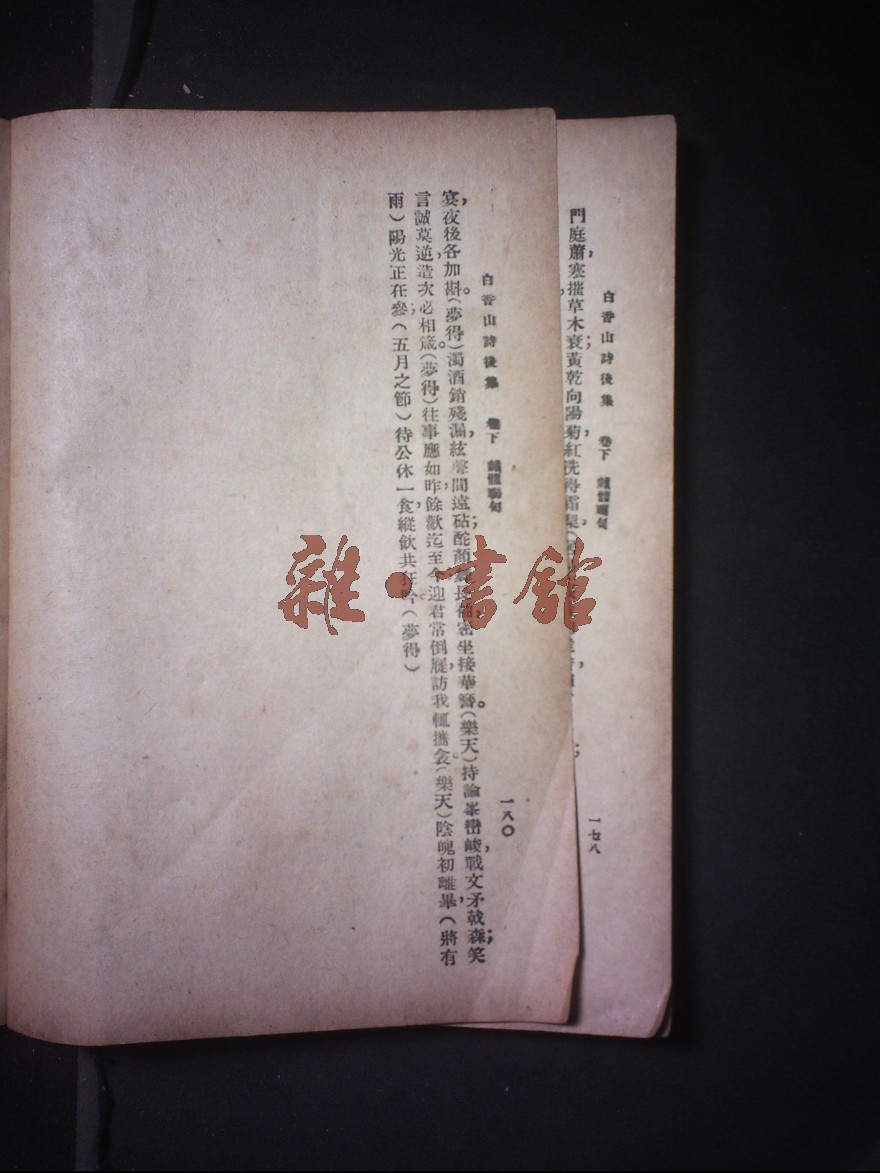 白香山詩後集 卷下 雜體聯句
一七八
門庭蕭寒摧草木衰黃乾向陽菊紅洗得霜梨
白香山詩後集 卷下 雜體聯句
一八〇
宴,夜後各加斟。(夢得)濁酒銷殘漏,絃聲間遠砧;酡顏舞長袖,密坐接華簪。(樂天)持論峯巒峻,戰文矛戟森;笑
言誠莫逆,造次必相箴。(夢得)往事應如昨,餘歡迄至今;迎君常倒屣,訪我輒攜衾。(樂天)陰魄初離畢,(將有
雨)陽光正在參;(五月之節)待公休一食,縱飲共狂吟。(夢得)
雜·書館